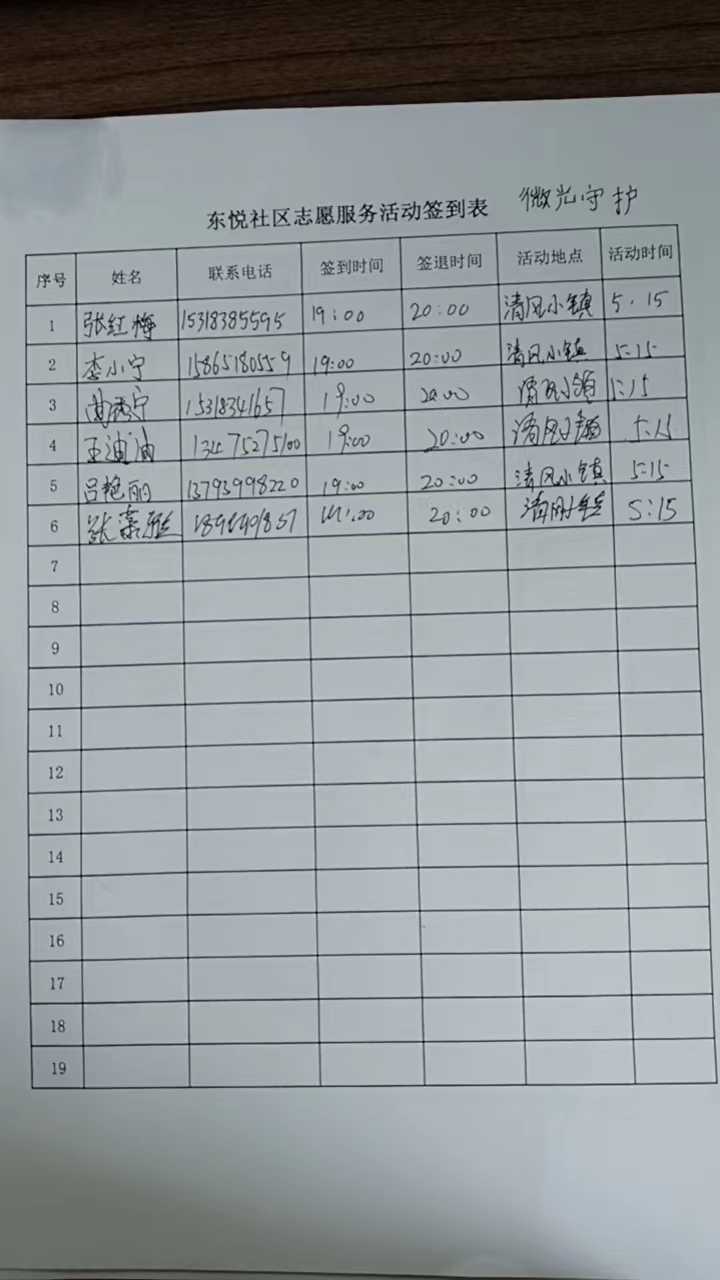 东悦社区志愿服务活动签到表 微光守护
序号 姓名 联系电话 签到时间 签退时间 活动地点 活动时间
1 张红梅 15318385595 19:00 20:00 清风小镇 5.15
2 李小宁 15865180559 19:00 20:00 清风小镇 5:15
3 15318341657 19:00 20:00 清风小镇 5:15
4 王迪油 13475275100 19:00 20:00 清风小镇 5:15
5 吕艳丽 13793998220 19:00 20:00 清风小镇 5:15
6 张 20:00 清风小镇 5:15
7
8
9
10
11
12
13
14
15
16
17
18
19